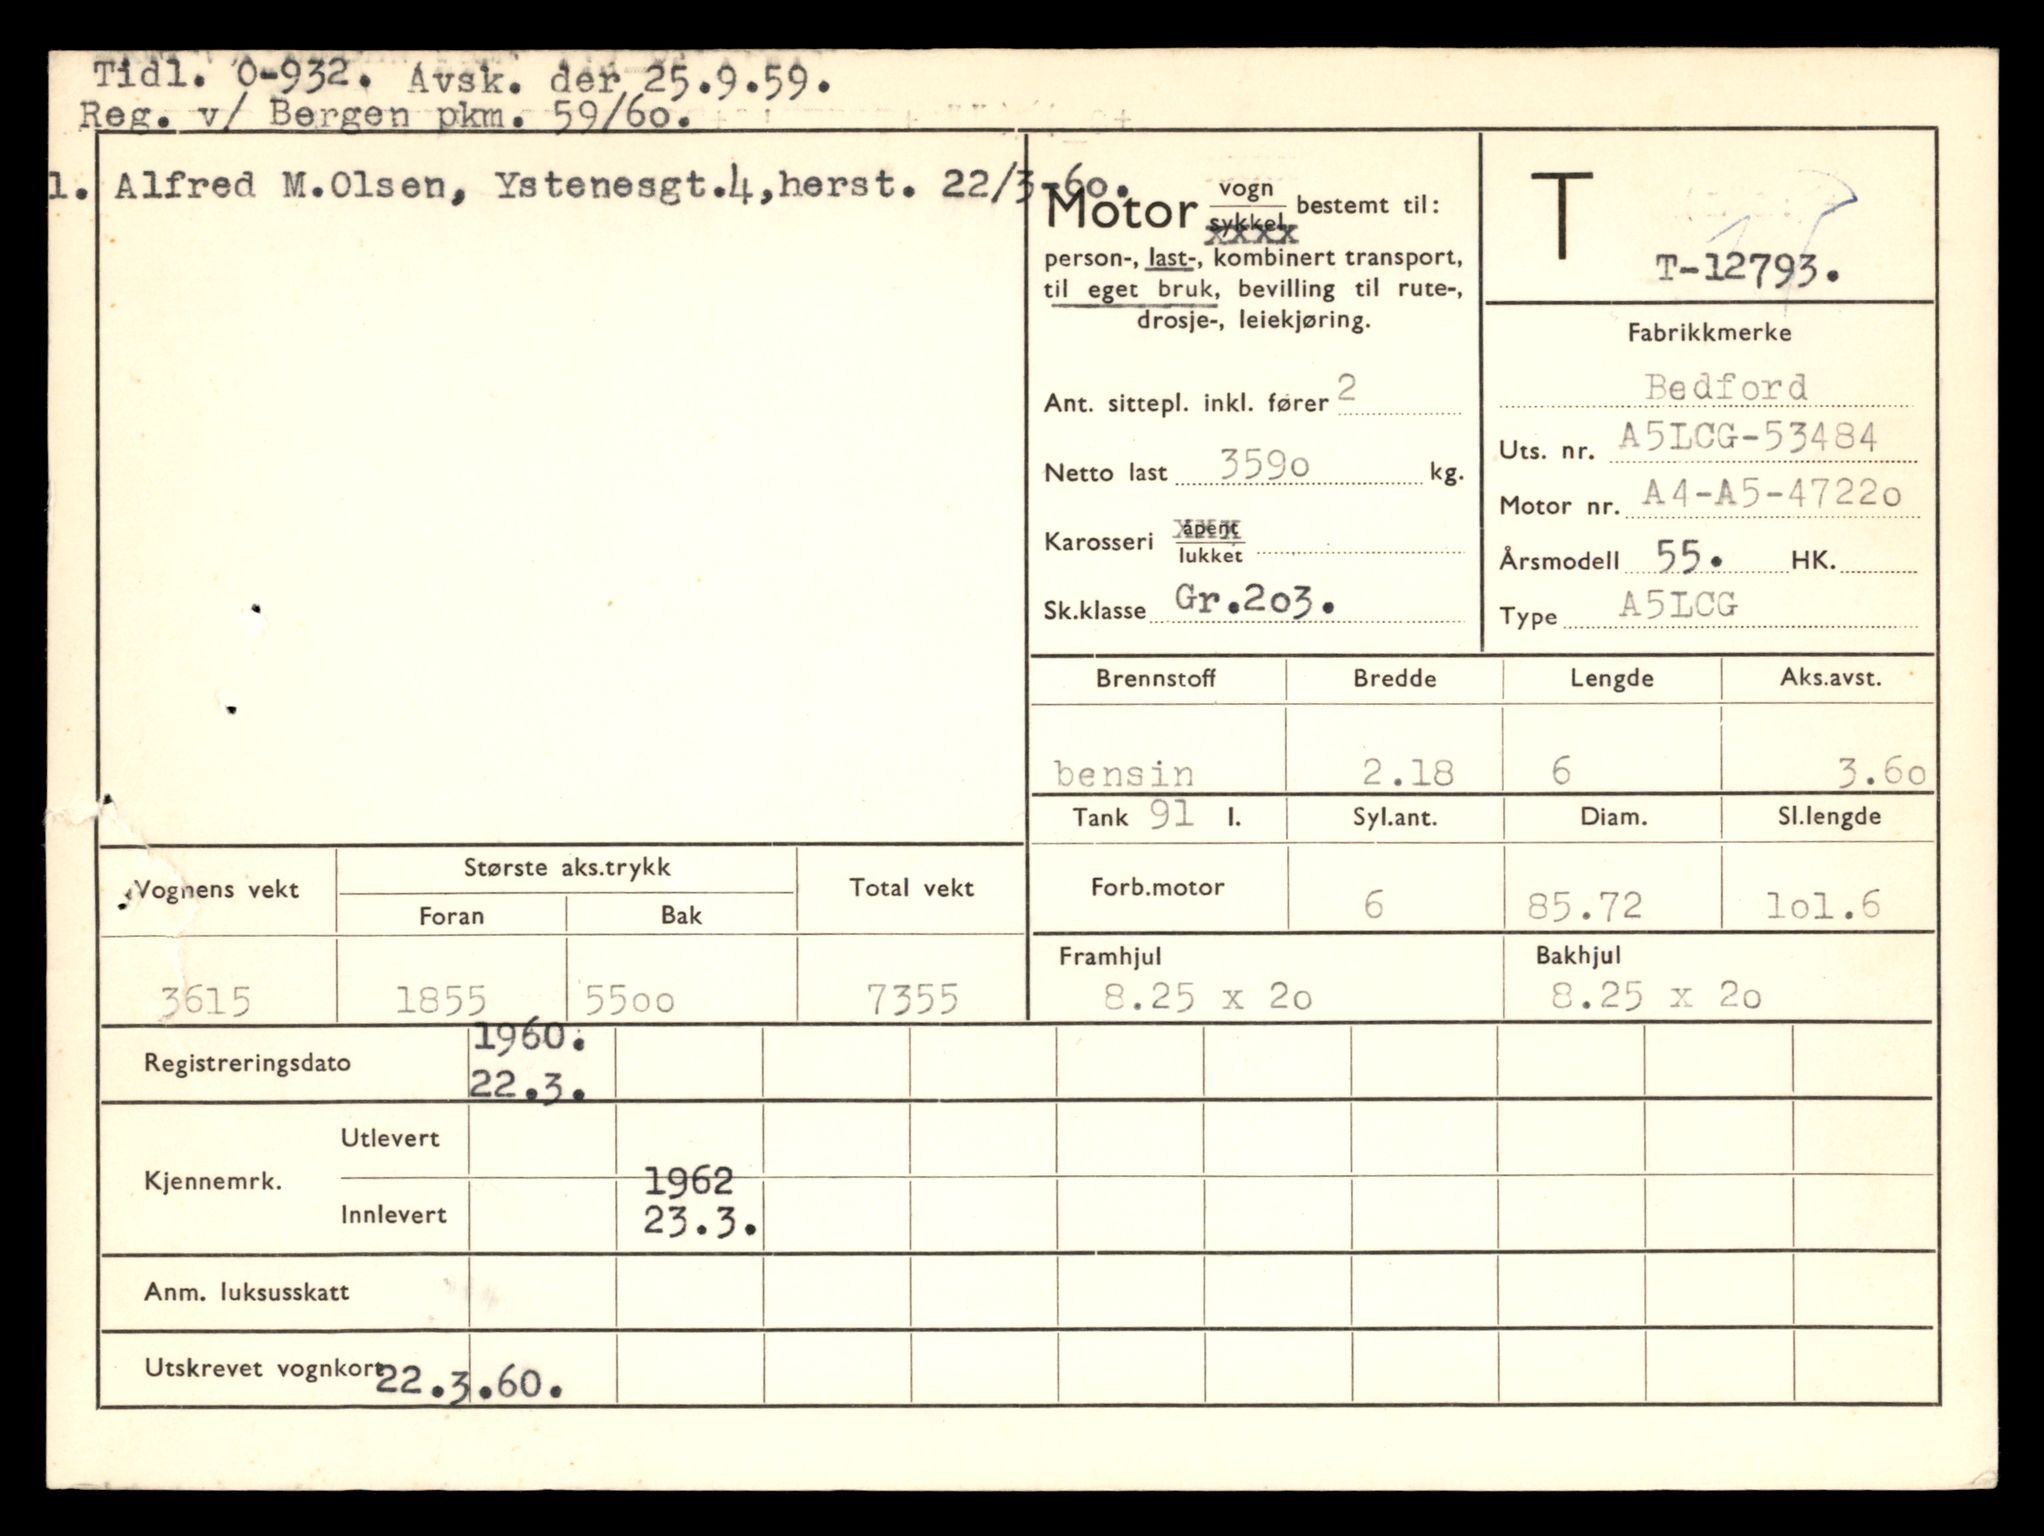 Tidl. O-932. Avsk. der 25.9.59.
Reg. v/ Bergen pkm. 59/6o.
1. Alfred M.Olsen, Ystenesgt.4,herst. 22/3-6o.
Motor vogn bestemt til:
sykkel
person-, last-, kombinert transport,
til eget bruk, bevilling til rute-,
drosje-, leiekjøring.
Ant. sittepl. inkl. fører 2
Netto last 359o kg.
Karosseri åpent
lukket
Sk.klasse Gr.2o3.
T
T-12793.
Fabrikkmerke
Bedford
Uts. nr. A5LCG-53484
Motor nr. A4-A5-4722o
Årsmodell 55. HK.
Type A5LCG
Brennstoff Bredde Lengde Aks.avst.
bensin 2.18 6 3.6o
Tank 91 l. Syl.ant. Diam. Sl.lengde
Forb.motor 6 85.72 lol.6
Framhjul Bakhjul
8.25 x 2o 8.25 x 2o
Vognens vekt Største aks.trykk Total vekt
Foran Bak
3615 1855 55oo 7355
Registreringsdato 1960.
22.3.
Kjennemrk. Utlevert
Innlevert 1962
23.3.
Anm. luksusskatt
Utskrevet vognkort 22.3.60.